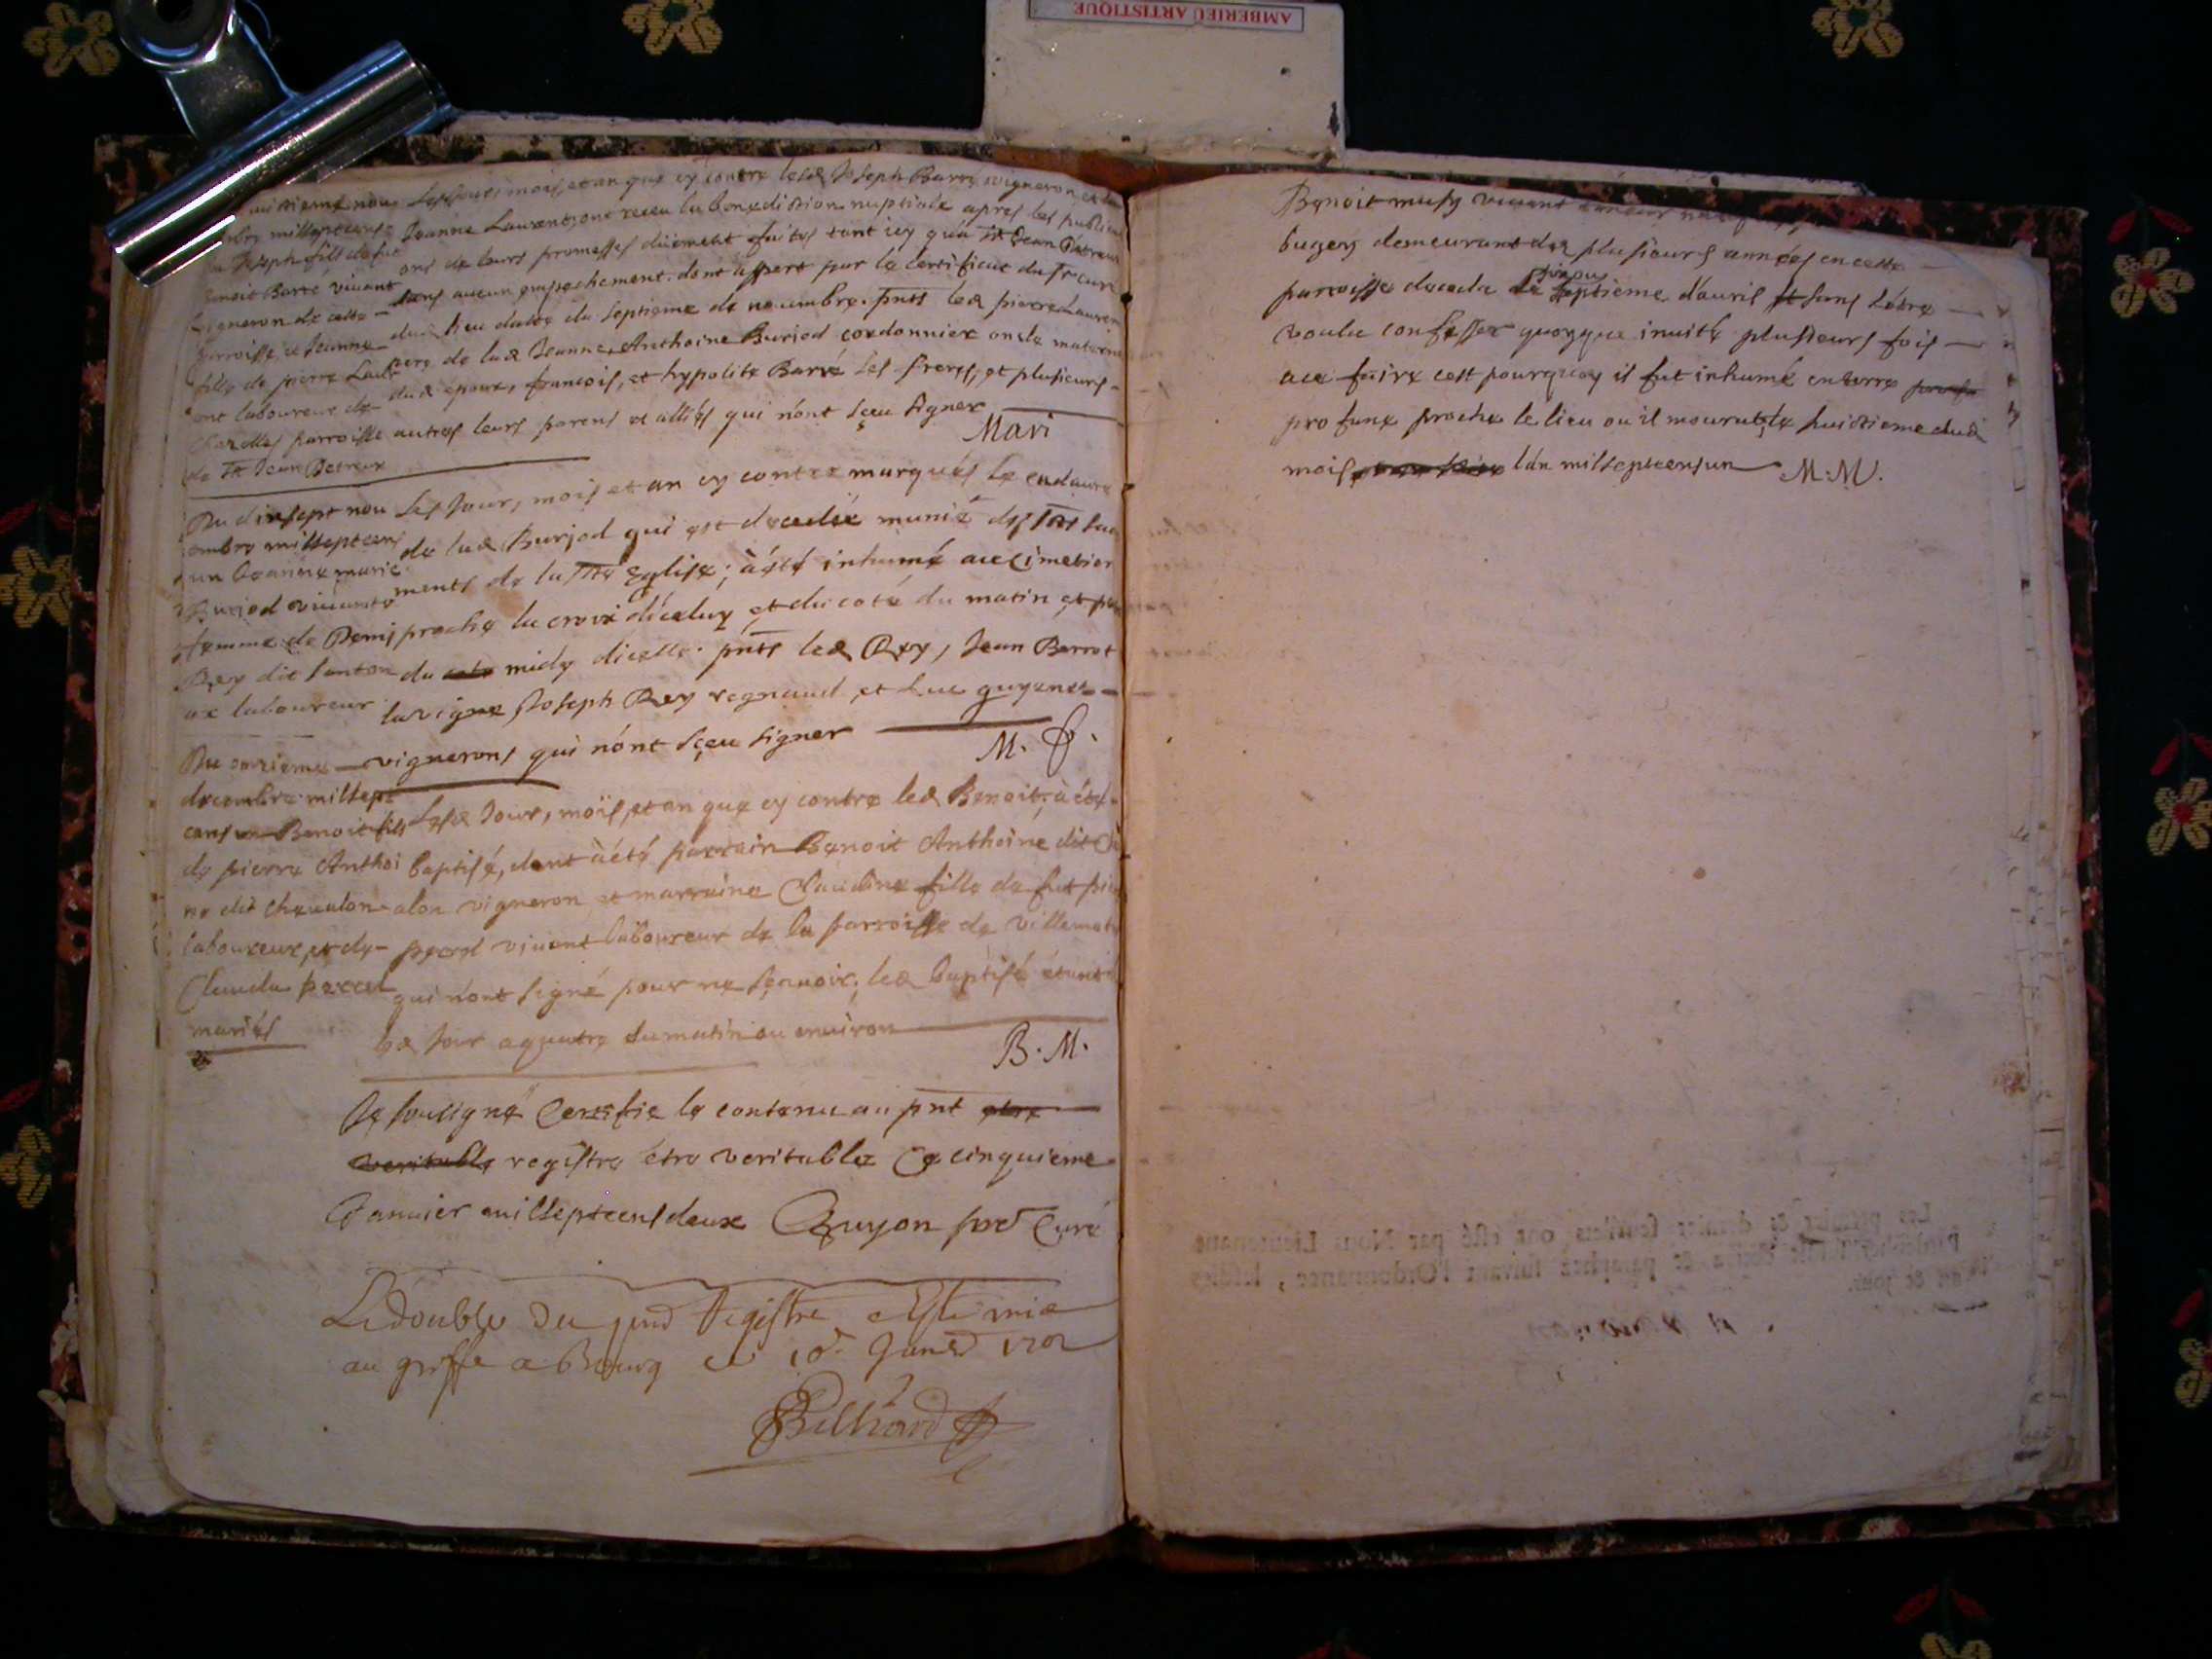 AMBERIEU ARTISTIQUE
huitieme nou
embre millesepteens
Joseph fils de fut
Benoit Barré viuant
vigneron de cette
parroisse, et Jeanne
fille de pierre Laur
ent laboureur de
Chazelles parroisse
de St Jean Detreux
Lesd Jour, mois, et an que cy contre lesd Joseph Barré vigneron, et
Jeanne Laurent, ont receu la benediction nuptiale apres les publicati
ons de leurs promesses düement faites tant icy qu'a St Jean Detreux
sans aucun empeschement. dont appert par le certificat du Sr curé
dud lieu datté du septieme de nouembre. pnts led pierre Lauren
pere de lad Jeanne, Anthoine Burjod cordonnier oncle maternel
dud epoux, francois, et hypolite Barré ses freres, et plusieurs
autres leurs parens et alliés qui n'ont sçeu signer
Mari
Du dixsept nou
embre millesepteens
un Jeanne marie
Burjod viuante
femme de Denis
Rey dit santon
ux laboureur
Les Jour, mois et an cy contre marqués le cadaure
de lad Burjod qui est decedée munie des sts sacre
ments de la ste Eglise; à été inhumé au cimetier
proche la croix d'iceluy et du coté du matin et
du midy d'icelle. pnts led Rey, Jean Berrot
lavigne Joseph Rey regnaud, et Luc guyenet
vignerons qui n'ont sçeu signer
M. S.
Du onzieme
decembre millesept
cens un Benoit fils
de pierre Anthoi
ne dit cheualon
laboureur, et de
Claudu percel
mariés
B.
Lesd Jour, mois, et an que cy contre led Benoit, à été
baptisé, dont à été parrain Benoit Anthoine dit
alon vigneron, et marraine Claudine fille de fut
percel viuant laboureur de la parroisse de Villemot
qui n'ont signé pour ne sçauoir; led baptisé étant
led Jour a quatre du matin ou enuiron
B. M.
Je soussigné Certifie le contenu au pnt etre
veritable registre être veritable Ce cinquieme
Januier millesepteens deux Guyon prê Curé
Le double du pnd Registre Esté mis
au greffe a Bourg ce 10e Janer 1702
Billiard
Benoit musy viuant
bugey demeurant des plusieurs années en cette
parroisse deceda le septieme d'auril sans s'être
voulu confesser quoyque inuité plusieurs fois
a ce faire cest pourquoy il fut inhumé en terre
profane proche le lieu ou il mourut, le huictieme dud
mois l'an millesepteens un M. M.
Les premier & dernier feuillets ont esté par Nous Lieutenant
cottez & paraphez suivant l'Ordonnance, lesdits
an & jour.